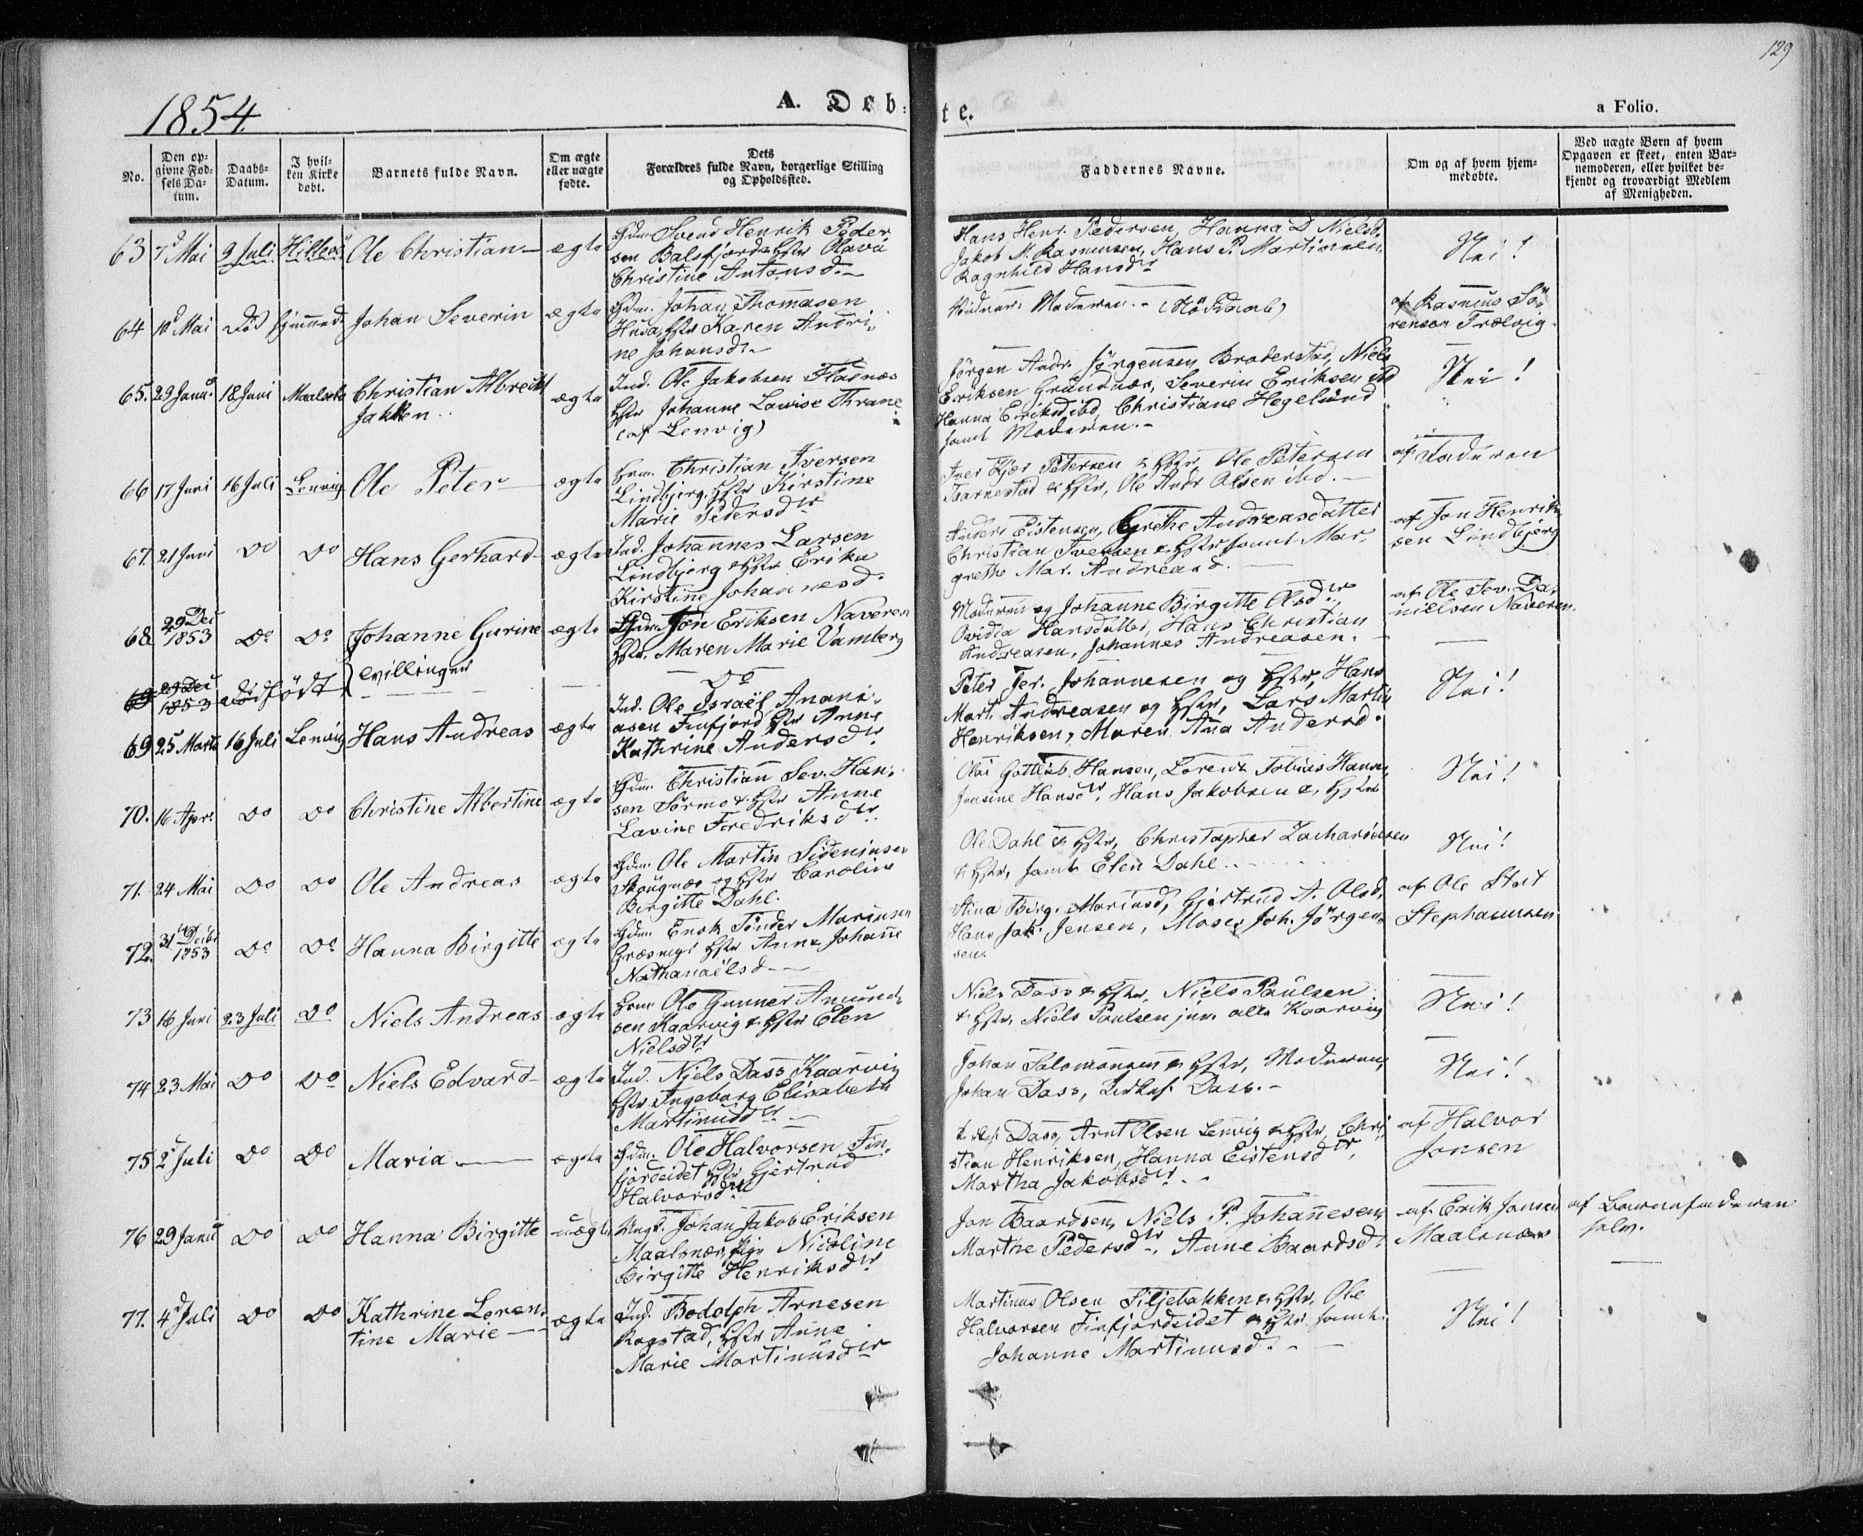 129
1854
A. Deb=te.
a Folio.
No.
Den op-
givne Fød-
sels Da-
tum.
Daabs-
Datum.
I hvil-
ken Kirke
døbt.
Barnets fulde Navn.
Om ægte
eller uægte
fødte.
Dets
Forældres fulde Navn, borgerlige Stilling
og Opholdssted.
Faddernes Navne.
Om og af hvem hjem-
medøbte.
Ved uægte Børn af hvem
Opgaven er skeet, enten Bar-
nemoderen, eller hvilket be-
kjendt og troværdigt Medlem
af Menigheden.
63 7d Mai 9 Juli Hillesö Ole Christian ægte
Gdm. Svend Henrik Peder
sen Balsfjord & Hstr Olava
Christine Antonsd.
Hans Henr. Pedersen, Hanna D. Nielsd.
Jakob M. Rasmussen, Hans P. Martinsen
Ragnhild Hansdtr
Nei!
64 10d Mai Död hjemmed. Johan Severin ægte
Gdm. Johan Thomasen
Husa, Hstr Karen Andri-
ne Johansdr
Vidner: Moderen. (Nöddaab)
af Rasmus Sö-
rensen Trælvig.
65. 29 Janu. 18 Juni Maalselv Christian Albrecht
Jakken ægte
Ind. Ole Jakobsen Flatnæs
Hstr Johanne Lovise Krane
(af Lenvig)
Jørgen Andr. Jørgensen Broderstad, Niels
Eriksen Grundnæs, Severin Eriksen ibd
Hanna Eriksd ibd, Christiane Hegelund
samt Moderen.
Nei!
66 17 Juni 16 Juli Lenvig Ole Peter ægte
Hrm. Christian Iversen
Lindbjerg, Hstr Kirstine
Marie Pedersdtr
Iver Kjær Petersen & Hstr, Ole Petersen
& Hstr, Ole Andr Olsen ibd.
af Faderen
67. 21 Juni Do Do Hans Gerhard ægte
Ind. Johannes Larsen
Lindbjerg & Hstr Erika
Kirstine Johannesd.
Anders Eistensen, Grethe Andreasdatter
Christian Iversen & Hstr samt Mar-
grethe Mar. Andreasd.
af Jon Henrik-
sen Lindbjerg
68 29 Dec
1853 Do Do Johanne Gurine ægte
Gdm. Jon Eriksen Naveren
Hstr. Maren Marie Vamberg
Moderen og Johanne Birgitte Olsdtr,
Ovidia Hansdatter, Hans Christian
Andreasen, Johannes Andreasen.
af Ole Sev. Da-
nielsen Naveren.
69 29 Dec
1853 dödfödt Tvillinger Do
69 25 Marts 16 Juli Lenvig Hans Andreas ægte
Ind. Ole Israël Anani-
asen Finfjord Hstr Anne
Kathrine Andersdtr
Peter Jer. Johannesen og Hstr, Hans
Mart. Andreasen og Hstr, Lars Martin
Henriksen, Maren Ana Andersd.
Nei!
70. 16 Apr. Do Do Christine Albertine ægte
Gdm. Christian Sev. Han-
sen Sörmo & Hstr Anne
Lavine Fredriksdtr
Olai Gottlieb Hansen, Lorentz Tobias Hansen,
Jensine Hansdtr, Hans Jakobsen & Hstr
Nei!
71. 24 Mai Do Do Ole Andreas ægte
Gdm. Ole Martin Sideninsen
Skougnæs og Hstr Caroline
Birgitte Dahl.
Ole Dahl & Hstr, Christopher Zachariasen
& Hstr, samt Elen Dahl.
Nei!
72. 31 Decbr
1853 Do Do Hanna Birgitte ægte
Gdm. Enok Tönder Marinsen
Græsmyr Hstr Anne Johanne
Nathanaëlsd
Stina Birg. Mariusd, Gjertrud A. Olsd,
Hans Jak. Jensen, Moses Joh. Jörgen-
sen.
af Ole
Stephanusen
73 16 Juni 23 Juli Do Niels Andreas ægte
Hrm. Ole Gunner Amund-
sen Kaarvig & Hstr Elen
Nielsdtr
Niels Dass & Hstr, Niels Paulsen
& Hstr, Niels Paulsen jun. alle Kaarvig
Nei!
74 23 Mai Do Do Niels Edvard ægte
Ind. Niels Dass Kaarvig
Hstr Ingeborg Elisabeth
Martinusdtr
Johan Salomonsen & Hstr, Moderen,
Johan Dass, Dass.
Nei!
75 2d Juli Do Do Maria ægte
Gdm. Ole Halvorsen Fin-
fjordeidet Hstr Gjertrud
Halvorsdtr
Dass, Arnt Olsen Lenvig & Hstr, Chri
stian Henriksen, Hanna Eistensdtr,
Martha Jakobsdtr.
af Halvor
Jonsen
76 29 Janu Do Do Hanna Birgitte uægte
Ungk. Johan Jakob Eriksen
Maalsnæs, Pige Nicoline
Birgitte Henriksdtr
Jon Baardsen, Niels P. Johannesen,
Marthe Pedersdtr, Anne Baardsd.
af Erik Jonsen
Maalsnæs
af Barnefaderen
selv.
77. 4d Juli Do Do Kathrine Loren-
tine Marie ægte
Ind. Bodolph Arnesen
Rogstad, Hstr Anne
Marie Martinusdtr
Martinus Olsen Siljebakken & Hstr, Ole
Halvorsen Finfjordeidet & Hstr samt
Johanne Martinusd.
Nei!